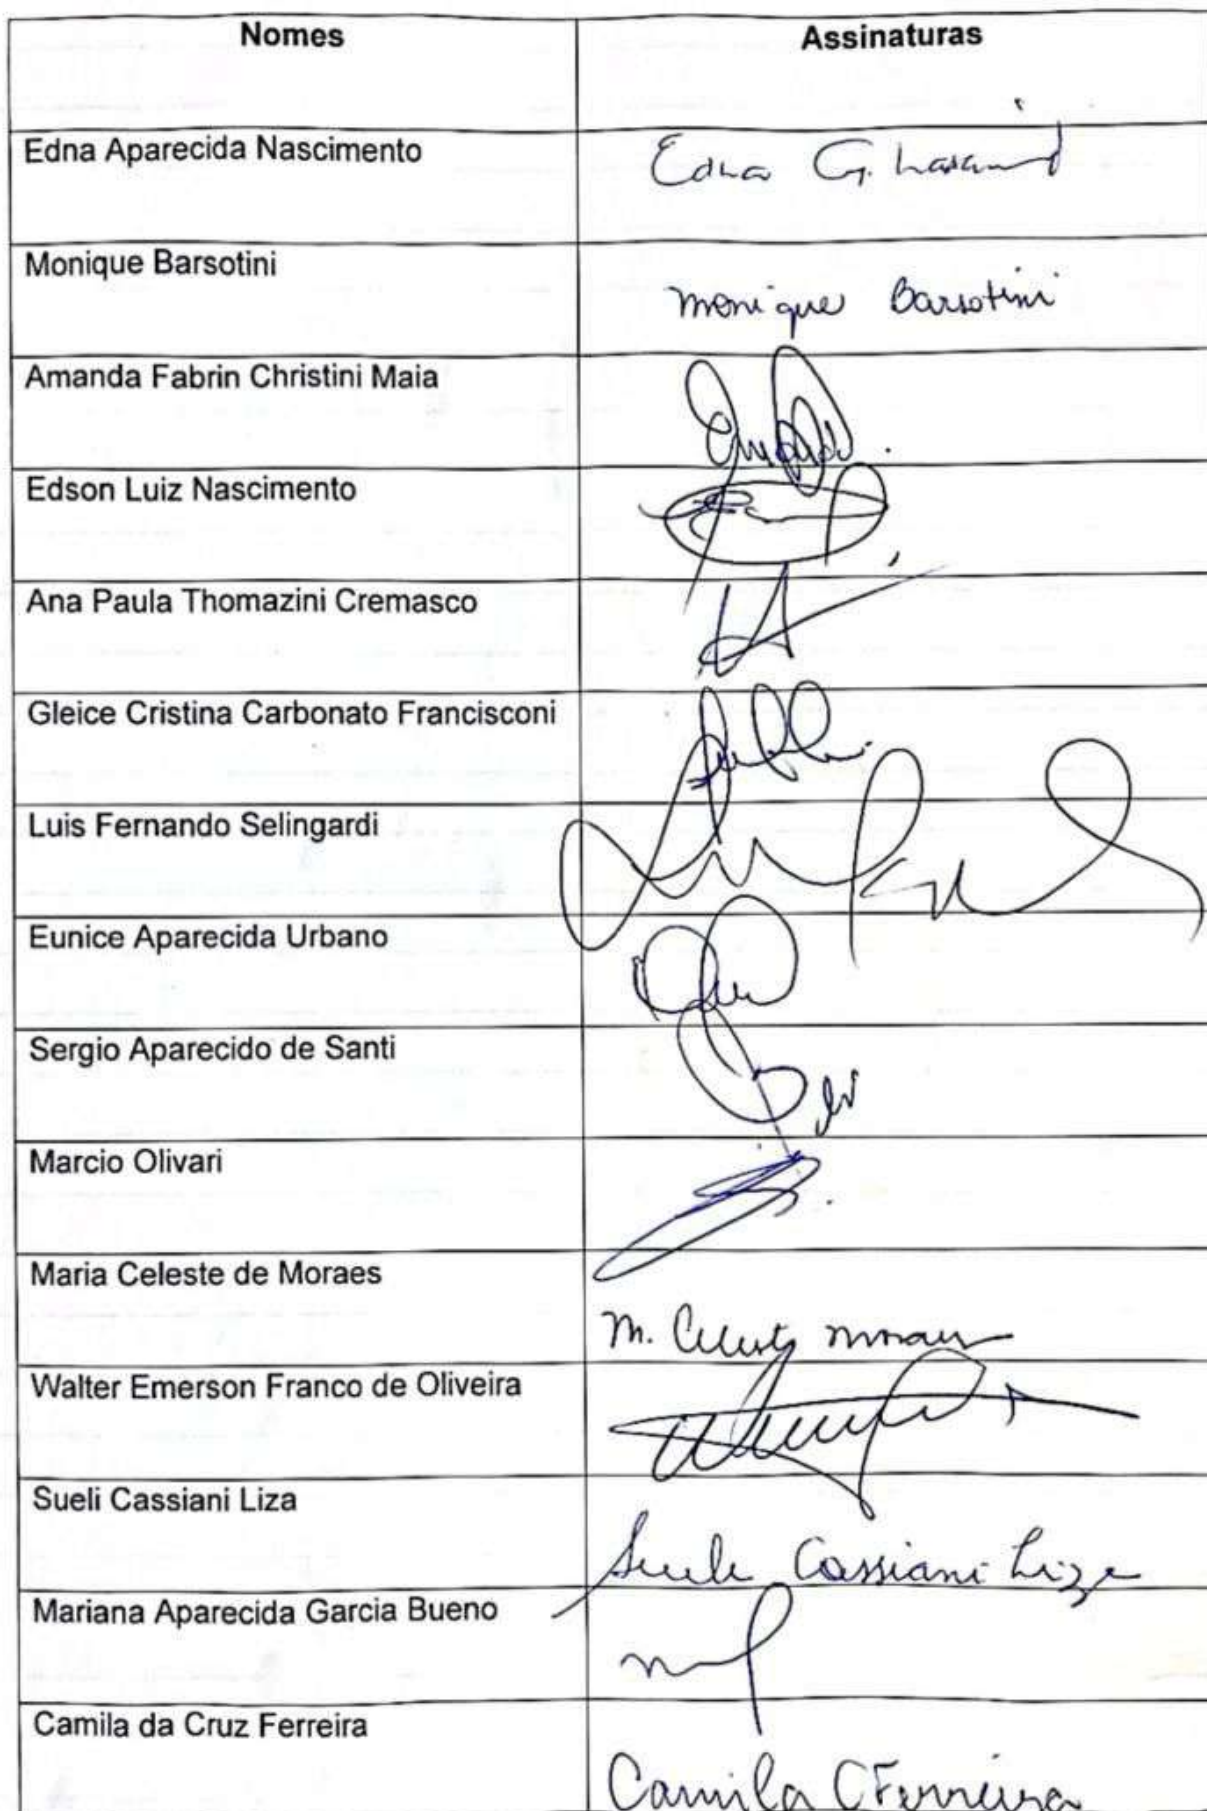 Nomes Assinaturas
Edna Aparecida Nascimento Edna
Monique Barsotini Monique Barsotini
Amanda Fabrin Christini Maia
Edson Luiz Nascimento
Ana Paula Thomazini Cremasco
Gleice Cristina Carbonato Francisconi
Luis Fernando Selingardi
Eunice Aparecida Urbano
Sergio Aparecido de Santi
Marcio Olivari
Maria Celeste de Moraes M. Celeste Moraes
Walter Emerson Franco de Oliveira
Sueli Cassiani Liza Sueli Cassiani Liza
Mariana Aparecida Garcia Bueno
Camila da Cruz Ferreira Camila C Ferreira